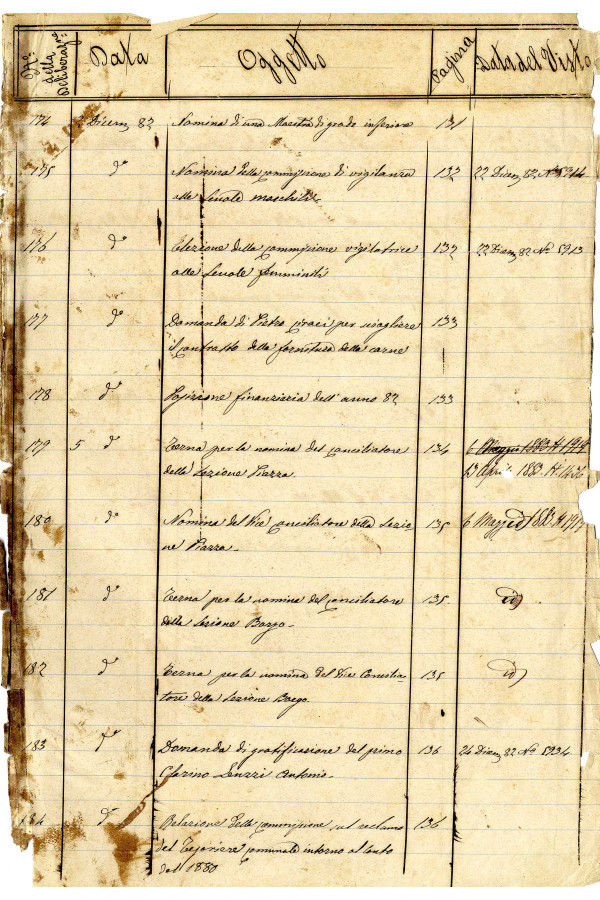 No della Deliberazne Data Oggetto Pagina Data del Visto
174 2 Dicem 82 Nomina di una Maestra di grado inferiore 131
175 do Nomina della commissione di vigilanza 132 22 Dicem 82 No 5914
alle Scuole maschili
176 do Elezione della commissione vigilatrice 132 22 Dicem 82 No 5913
alle Scuole femminili
177 do Domanda di Pietro per sciogliere 133
il contratto della fornitura della carne
178 do Posizione finanziaria dell'anno 82 133
179 5 do Terna per la nomina del conciliatore 134 6 Maggio 1883 N 1914
della Sezione Piazza. 13 April. 1883. N 1436
180 do Nomina del Vice conciliatore della Sezio- 135 6 1883 N
ne Piazza-
181 do Terna per la nomina del conciliatore 135. id
della Sezione Borgo-
182 do Terna per la nomina del Vice Concilia- 135 id
tore della Sezione Borgo.
183 do Domanda di gratificazione del primo 136 24 Dicem 82 No 5934
Clarino Antonio-
184 do Relazione della commissione sul reclamo 136
del Tesoriere comunale intorno al conto
del 1880